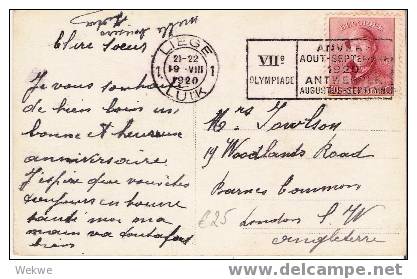 mille baisers
Chère Soeur
Je vous souhaite
de bien loin un
bonne et heureuse
anniversaire
J'espère que vous êtes
toujours en bonne
santé moi ma
main va toutafait
bien
LIEGE
21-22
19 VIII
1920
LUIK
1 1
VIIe
OLYMPIADE
ANVERS
AOUT-SEPTEMBRE
1920
ANTWERPEN
AUGUSTUS-SEPTEMBER
Mrs Towlson
19 Woodlands Road
Barnes Common
London S.W
Angleterre
€25
Wekwe
delcampe.net